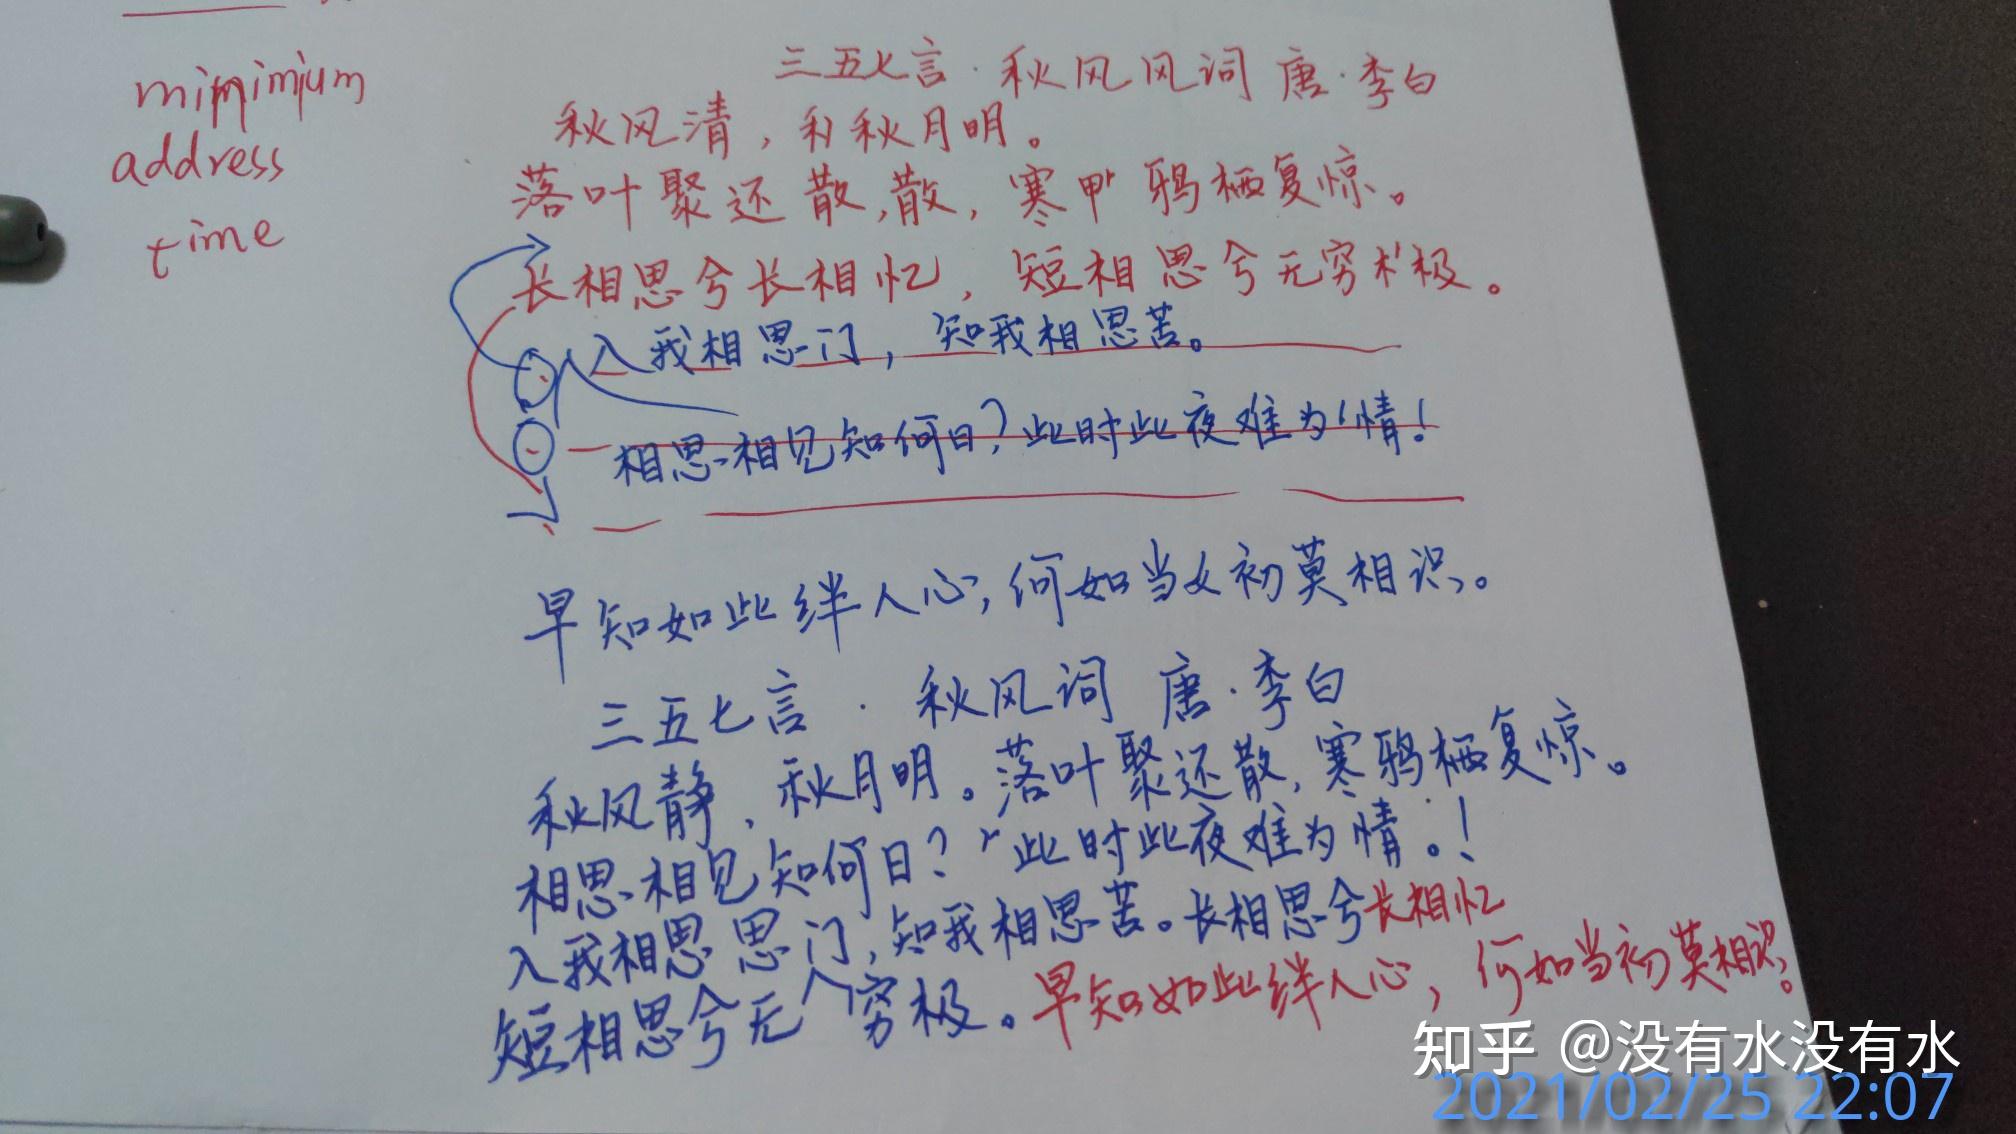 minimium
address
time
三五七言·秋风风词 唐·李白
秋风清，禾秋月明。
落叶聚还散,散，寒甲鸦栖复惊。
长相思兮长相忆，短相思兮无穷木极。
入我相思门，知我相思苦。
相思相见知何日？此时此夜难为情！
早知如此绊人心，何如当初莫相识。
三五七言·秋风词 唐·李白
秋风静，秋月明。落叶聚还散，寒鸦栖复惊。
相思相见知何日？此时此夜难为情。！
入我相思思门，知我相思苦。长相思兮长相忆
短相思兮无穷极。早知如此绊人心，何如当初莫相识。
知乎 @没有水没有水
2021/02/25 22:07